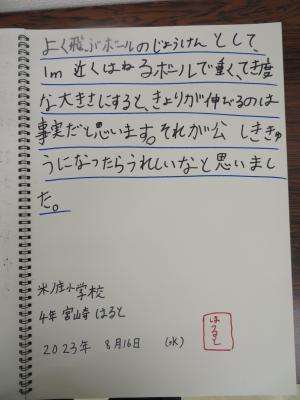 よく飛ぶボールのじょうけんとして、
1m 近くはねるボールで重く、てき度
な大きさにすると、きょりが伸びるのは
事実だと思います。それが公 しききゅ
うになったらうれしいなと思いまし
た。
米ノ庄小学校
4年 宮山寺 はると
2023年 8月16日 (水)
はると